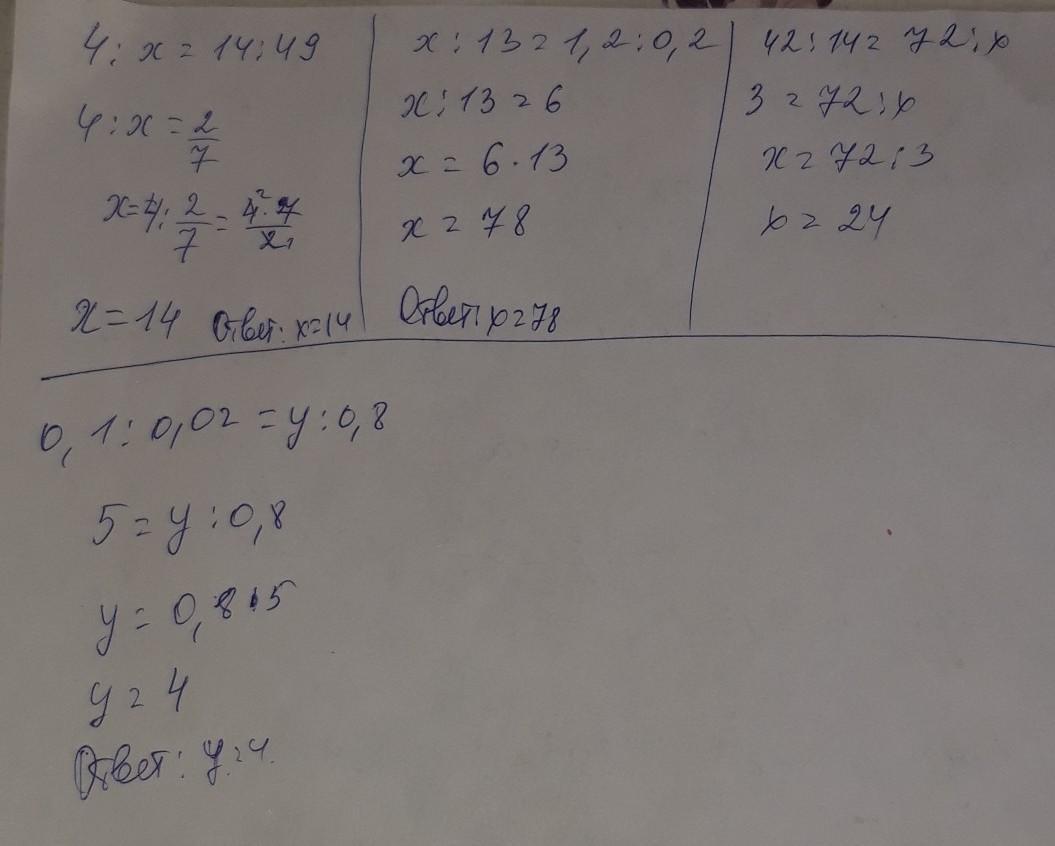 4 : x = 14 : 49
4 : x = 2/7
x = 4 : 2/7 = 4² · 7/2₁
x = 14 Ответ: x = 14
x : 13 = 1,2 : 0,2
x : 13 = 6
x = 6 · 13
x = 78
Ответ: x = 78
42 : 14 = 72 : x
3 = 72 : x
x = 72 : 3
x = 24
0,1 : 0,02 = y : 0,8
5 = y : 0,8
y = 0,8 · 5
y = 4
Ответ: y = 4.